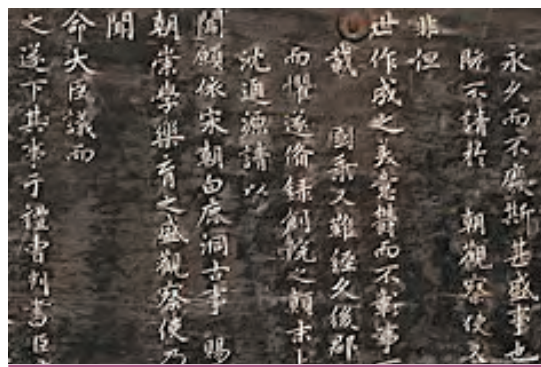 永久而不廢斯甚盛事也
院不請於 朝觀察使又
非但
世作成之美意鬱而不彰事
載 國乘又難經久後郡
而懼遂備錄創院之顚末上
沈通源請以
聞願依宋朝白鹿洞古事 賜
朝崇學樂育之盛觀察使乃
聞
命大臣議而
之遂下其事于禮曹判書臣